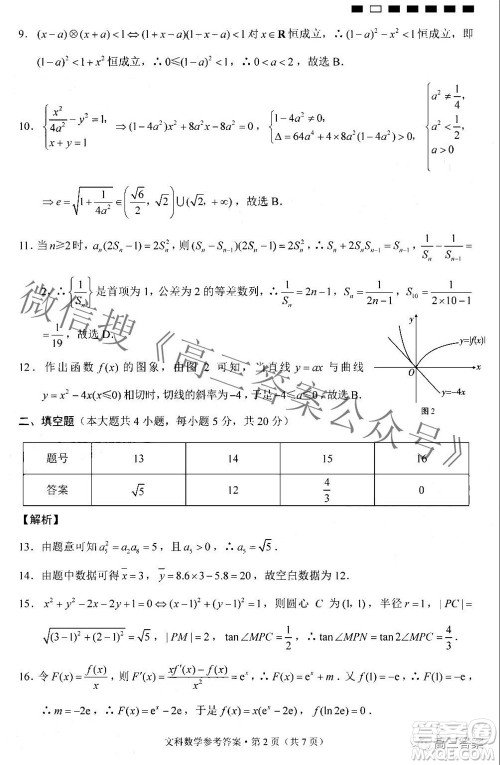 9. (x−a)⊗(x+a)<1⇔(1+x−a)(1−x−a)<1 对 x∈R 恒成立，∴(1−a)²−x²<1 恒成立，即
(1−a)²<1+x² 恒成立，∴0≤(1−a)²<1，∴0<a<2，故选 B．
10. { x²/4a² − y² = 1, x+y=1 ⇒(1−4a²)x²+8a²x−8a²=0，{ 1−4a²≠0, Δ=64a⁴+4×8a²(1−4a²)>0， { a²≠1/4, a²<1/2, a>0
⇒e=√(1+1/4a²)∈(√6/2, √2)∪(√2, +∞)，故选 B．
11. 当 n≥2 时，aₙ(2Sₙ−1)=2Sₙ²，则(Sₙ−Sₙ₋₁)(2Sₙ−1)=2Sₙ²，∴Sₙ+2SₙSₙ₋₁=Sₙ₋₁，∴1/Sₙ−1/Sₙ₋₁=
2，∴{1/Sₙ}是首项为 1，公差为 2 的等差数列，∴1/Sₙ=2n−1，Sₙ=1/(2n−1)，S₁₀=1/(2×10−1)=
1/19，故选 D．
12. 作出函数 f(x) 的图象，由图 2 可知，当直线 y=ax 与曲线
y=x²−4x(x≤0) 相切时，切线的斜率为−4，于是−4≤a≤0，故选 B．
y
y=|f(x)|
O
x
y=−4x
图 2
二、填空题（本大题共 4 小题，每小题 5 分，共 20 分）
题号 13 14 15 16
答案 √5 12 4/3 0
【解析】
13. 由题意可知 a₅²=a₂a₈=5，且 a₅>0，∴a₅=√5．
14. 由题中数据可得 x̄=3，ȳ=8.6×3−3.8=22，故空白数据为 12．
15. x²+y²−2x−2y+1=0⇒(x−1)²+(y−1)²=1，则圆心 C 为(1, 1)，半径 r=1，|PC|=
√((3−1)²+(2−1)²)=√5，|PM|=2，tan∠MPC=1/2，∴tan∠MPN=tan2∠MPC=4/3．
16. 令 F(x)=f(x)/x，则 F′(x)=(xf′(x)−f(x))/x²=eˣ，∴F(x)=eˣ+m，∵f(1)=−e，∴F(1)=−e，
∴m=−2e，∴F(x)=eˣ−2e，∴f(x)=x(eˣ−2e)，∴f′(x)=eˣ−2e+xeˣ，∴f′(1)=0．
文科数学参考答案·第 2 页（共 7 页）
微信搜《高三答案公众号》
高三答案